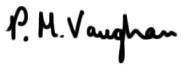 P. M. Vaughan